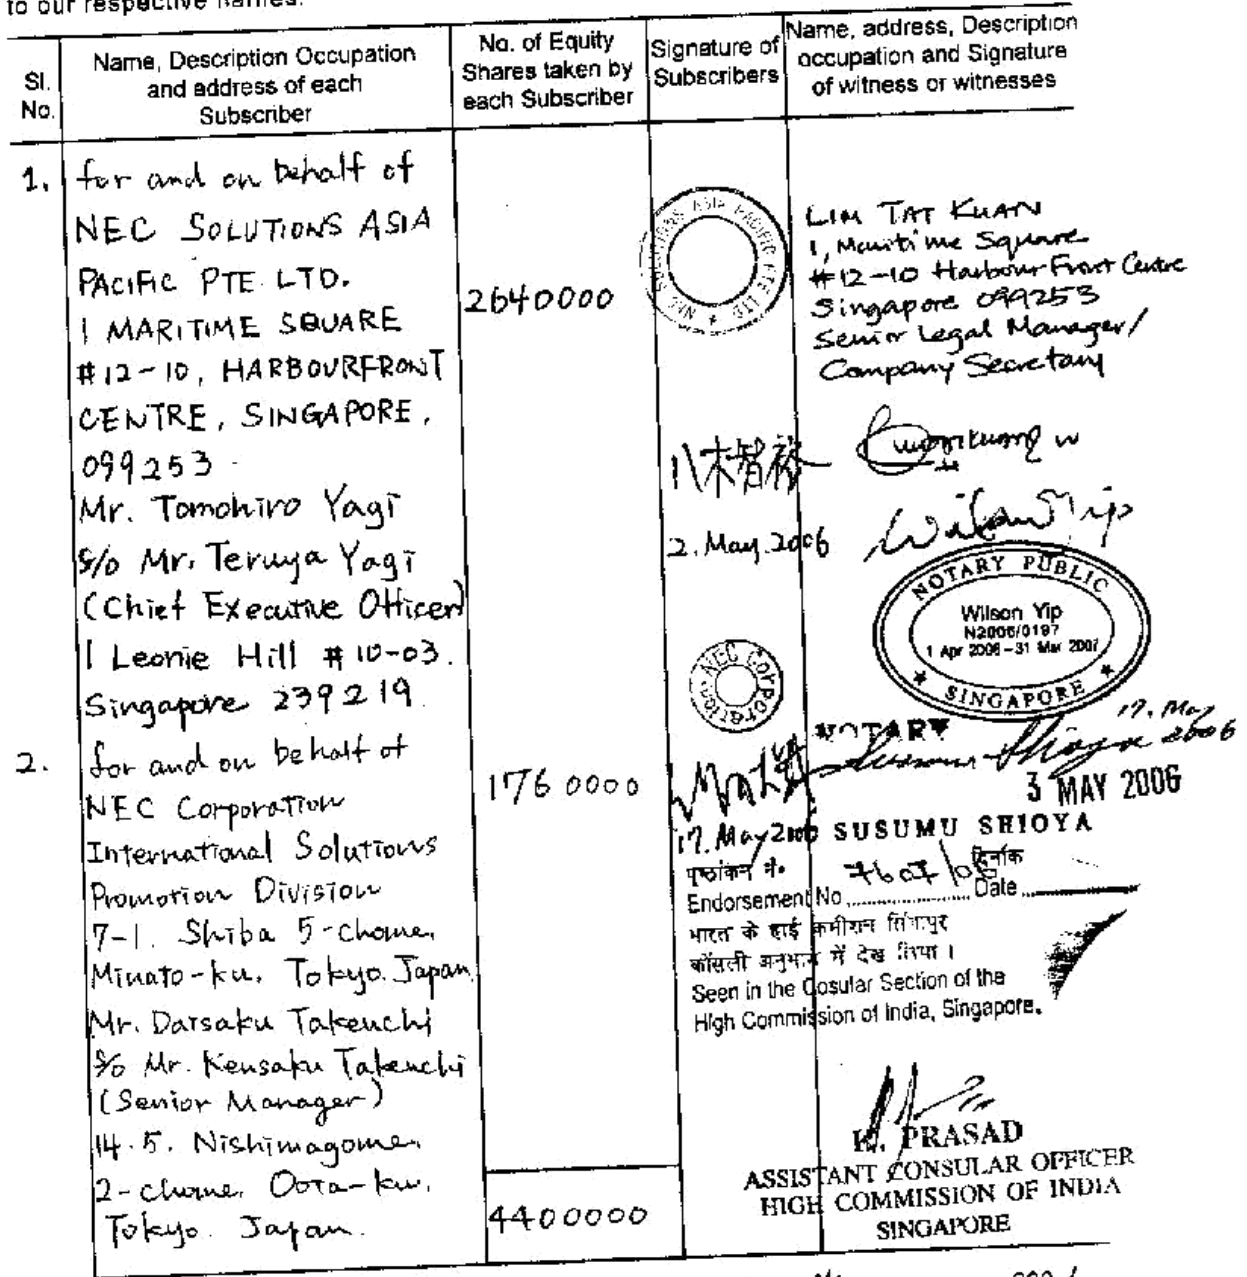 to our respective names.
Sl. No.
Name, Description Occupation and address of each Subscriber
No. of Equity Shares taken by each Subscriber
Signature of Subscribers
Name, address, Description occupation and Signature of witness or witnesses
1.
for and on behalf of
NEC SOLUTIONS ASIA
PACIFIC PTE LTD.
1 MARITIME SQUARE
#12-10, HARBOURFRONT
CENTRE, SINGAPORE,
099253
Mr. Tomohiro Yagi
s/o Mr. Teruya Yagi
(Chief Executive Officer)
1 Leonie Hill #10-03.
Singapore 239219
2640000
NEC SOLUTIONS ASIA PACIFIC PTE LTD *
八木智裕
2. May. 2006
LIM TAT KUAN
1, Maritime Square
#12-10 HarbourFront Centre
Singapore 099253
Senior Legal Manager/
Company Secretary
Wilson Yip
NOTARY PUBLIC
Wilson Yip
N2006/0197
1 Apr 2006 - 31 Mar 2007
* SINGAPORE *
2.
for and on behalf of
NEC Corporation
International Solutions
Promotion Division
7-1. Shiba 5-chome,
Minato-ku, Tokyo. Japan
Mr. Daisaku Takeuchi
s/o Mr. Kensaku Takeuchi
(Senior Manager)
14.5. Nishimagome,
2-chome, Oota-ku,
Tokyo. Japan.
1760000
4400000
NEC Corporation
17. May 2006
NOTARY
Susumu Shioya
17. May 2006
3 MAY 2006
SUSUMU SHIOYA
पृष्ठांकन नं॰
दिनांक
Endorsement No. 7607/06 Date
भारत के हाई कमीशन सिंगापुर
कौंसली अनुभाग में देख लिया ।
Seen in the Cosular Section of the
High Commission of India, Singapore.
K. PRASAD
ASSISTANT CONSULAR OFFICER
HIGH COMMISSION OF INDIA
SINGAPORE